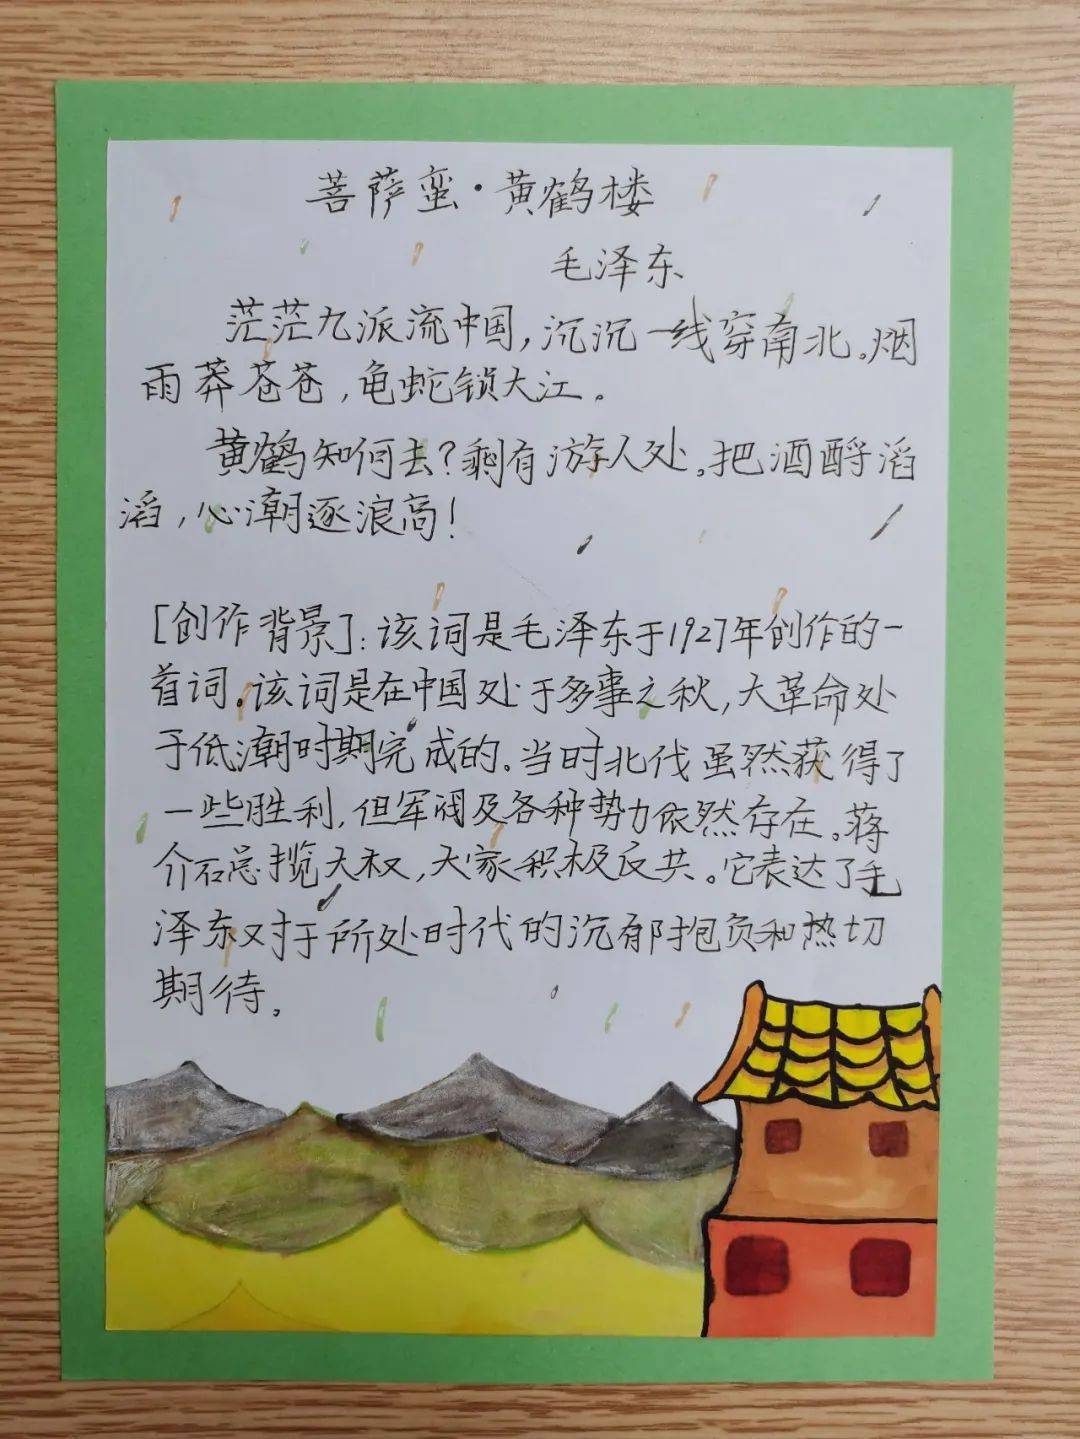 菩萨蛮·黄鹤楼
毛泽东
茫茫九派流中国,沉沉一线穿南北。烟
雨莽苍苍,龟蛇锁大江。
黄鹤知何去?剩有游人处。把酒酹滔
滔,心潮逐浪高!
[创作背景]:该词是毛泽东于1927年创作的一
首词。该词是在中国处于多事之秋,大革命处
于低潮时期完成的。当时北伐虽然获得了
一些胜利,但军阀及各种势力依然存在。蒋
介石总揽大权,大家积极反共。它表达了毛
泽东对于所处时代的沉郁抱负和热切
期待。